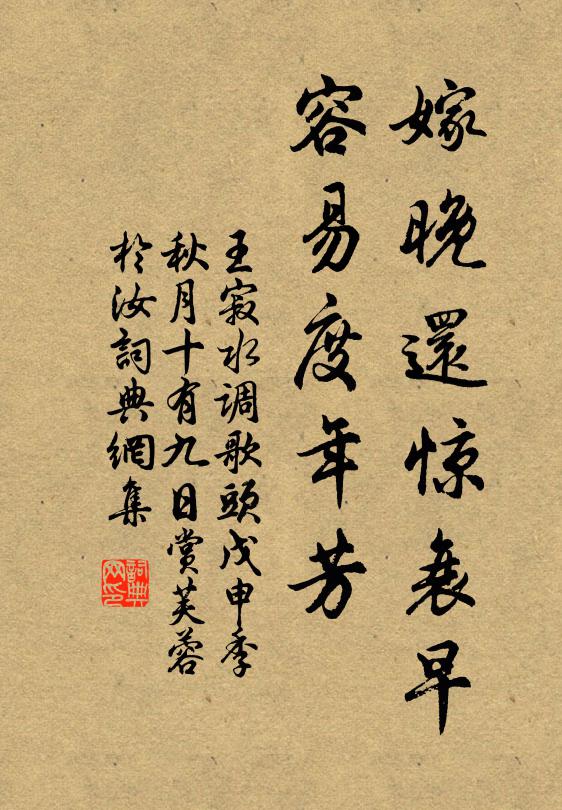 嫁晚還惊衰早
容易度年芳
王寂水调歌頭戊申季
秋月十有九日賞芙蓉
於汝詞典網集
詞典网印